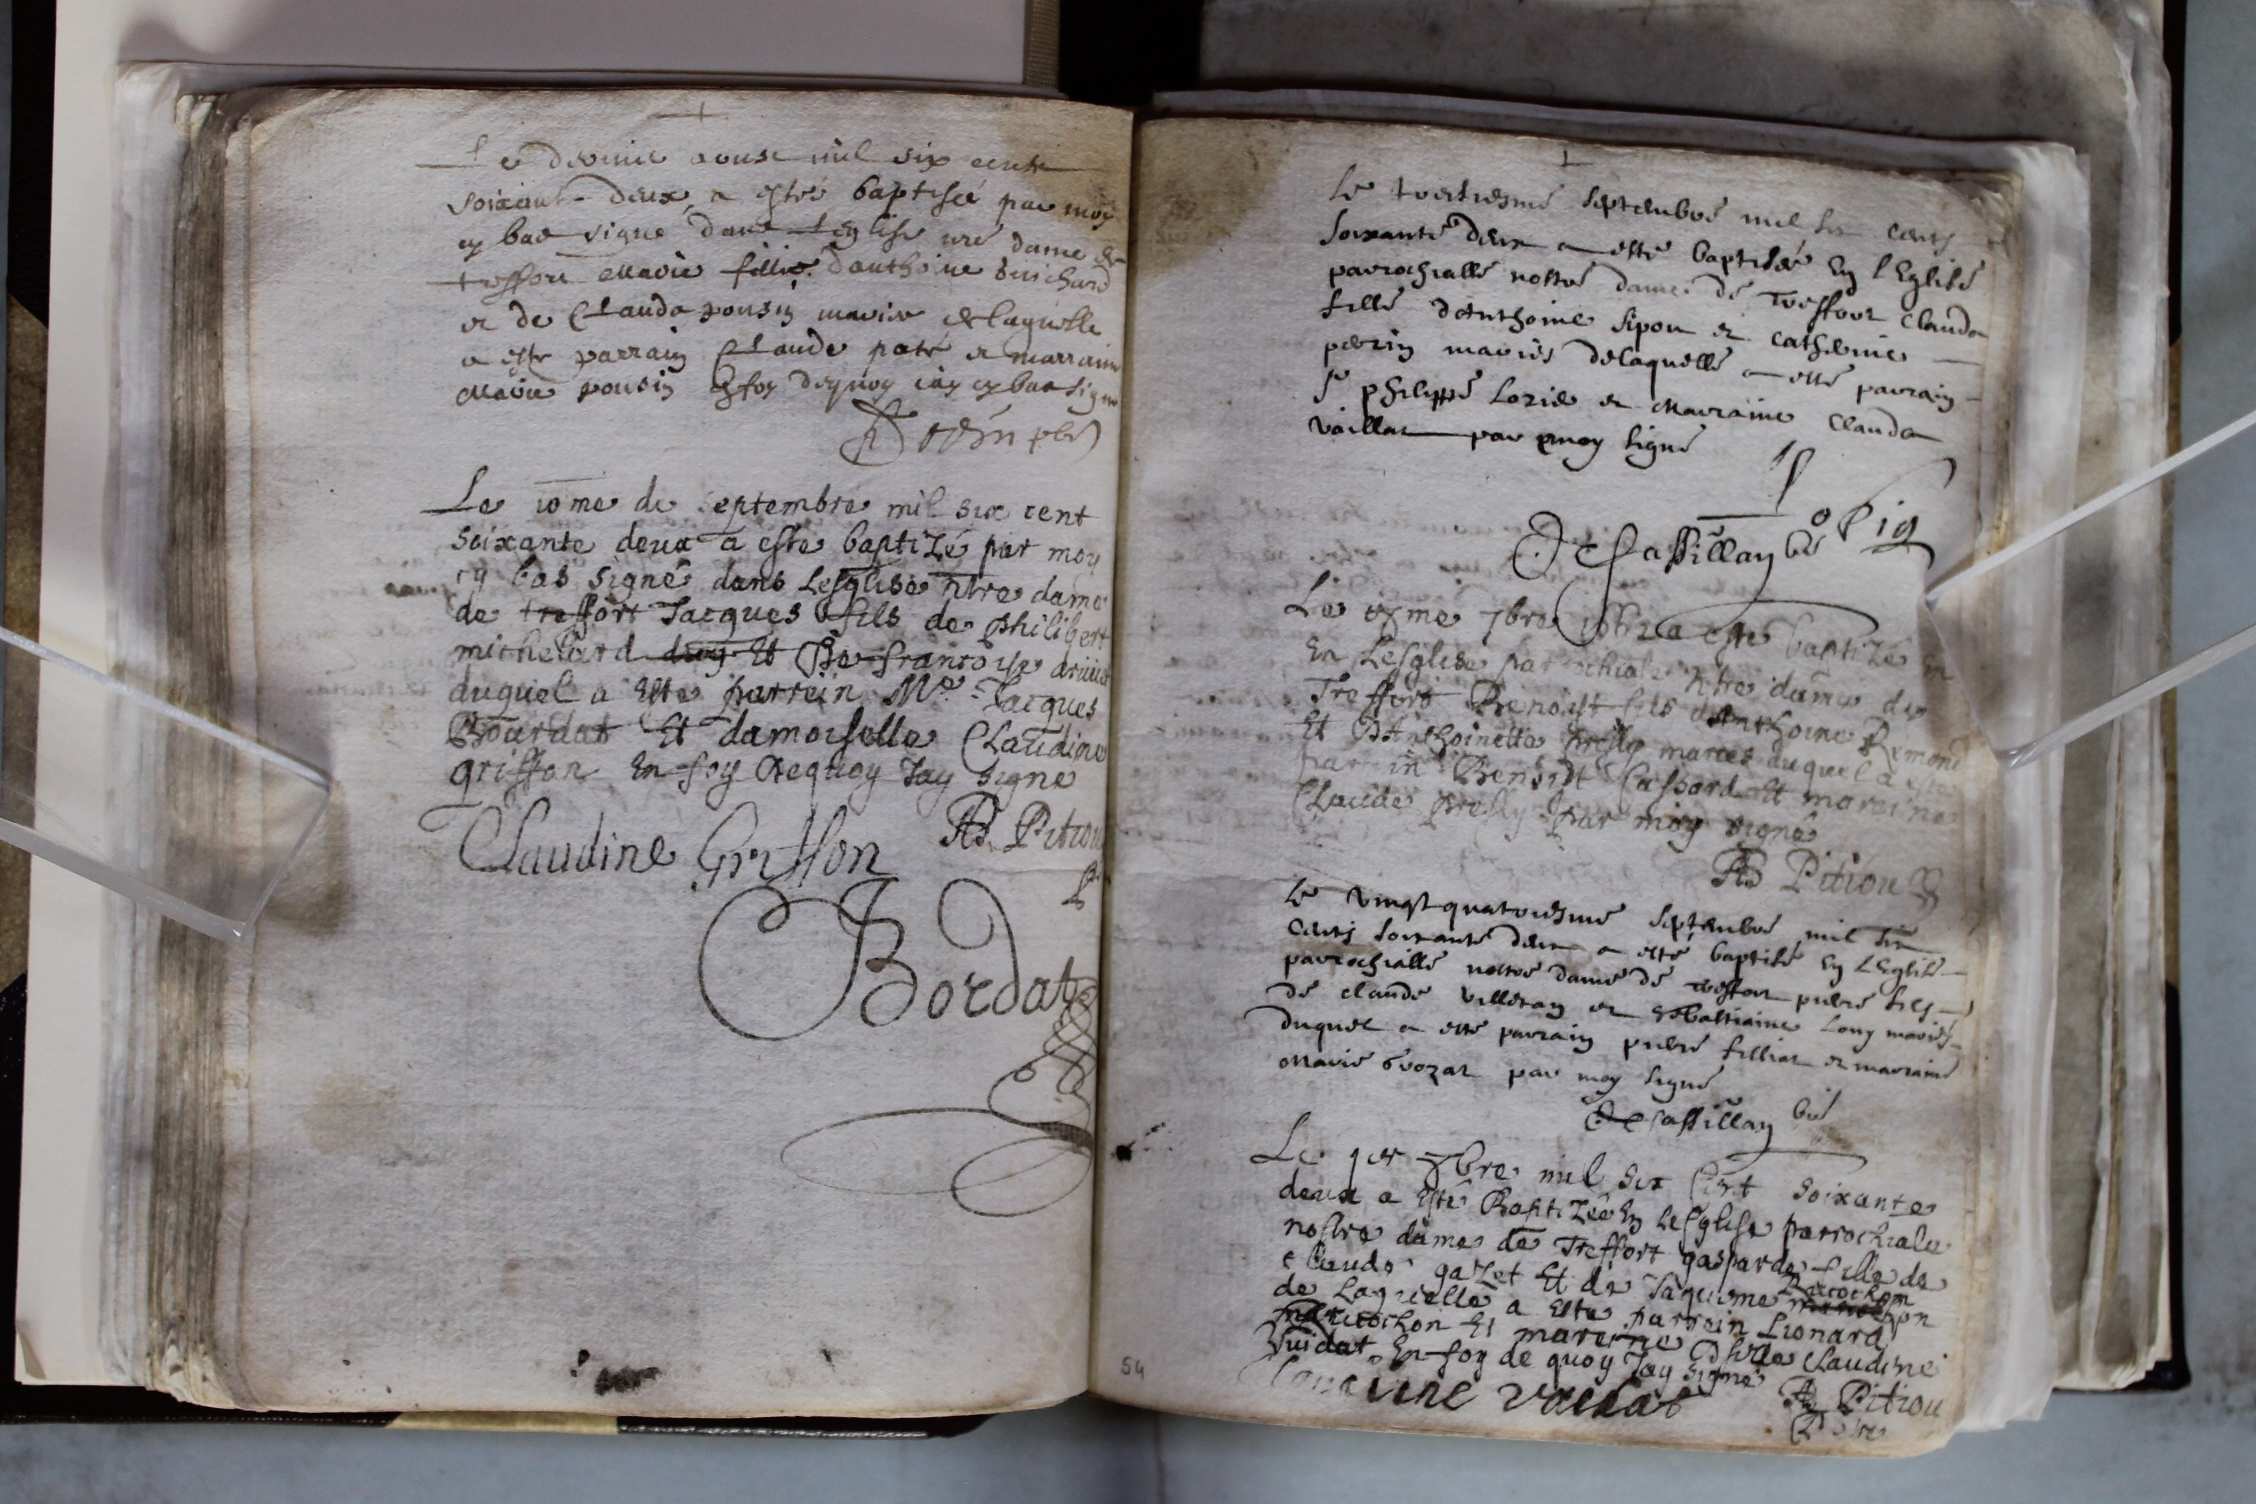 Le dernier aoust mil six cents
soixant-deux, a esté baptisée par moy
cy bas signé dans L'eglise nre dame de
treffort Marie fillie d'anthoine Guichard
et de Claude pousin maries de laquelle
a este parrain Claude paté et marraine
Marie pousin En foy dequoy iay cy bas signe
Le 10me de septembre mil six cent
soixante deux a este baptizé par moy
cy bas signé dans Lesglise ntre dame
de treffort Jacques fils de philibert
michelard Et De françoise
duquel a Este parrein Me Jacques
Bourdat Et damoiselle Claudine
griffon En foy Dequoy Jay signe
Claudine Griffon Pitiou
Bordat
Le treiziesme septembre mil six cents
soixante deux a esté baptisée En l'Eglise
parrochialle nostre dame de Treffort Clauda
fille d'Anthoine sipon et Catherine
perrin mariés de laquelle a esté parrain
sr philippe Lozie et Marraine Clauda
Vaillat par moy signé
DeCassillay
Le me 7bre 1662 a este baptizé
En Lesglise parrochiale ntre dame de
Treffort Benoist fils d'Anthoine Remond
Et D'Anthoinette prelly maries duquel a este
parrein Benoist Cuffard Et mareine
Claude prelly par moy signé
Pitiou
Le vingt quatriesme septembre mil six
cents soixante deux a esté baptisé En L'Eglise
parrochialle nostre dame de treffort pierre fils
de claude villeran et Sebastiaine Long mariés
duquel a esté parrain pierre filliat et marraine
Marie Brozat par moy signé
DeCassillay
Le per 8bre mil six Cent soixante
deux a Esté Baptizée En Lesglise parrochiale
nostre dame de Treffort gasparde fille de
Claude gazet Et de Jaqueme Perrochon
de Laquelle a Este parrein Lionard
perrochon Et mareine dlle Claudine
Vuidat En foy de quoy Jay signé
Claudine Pitiou
54